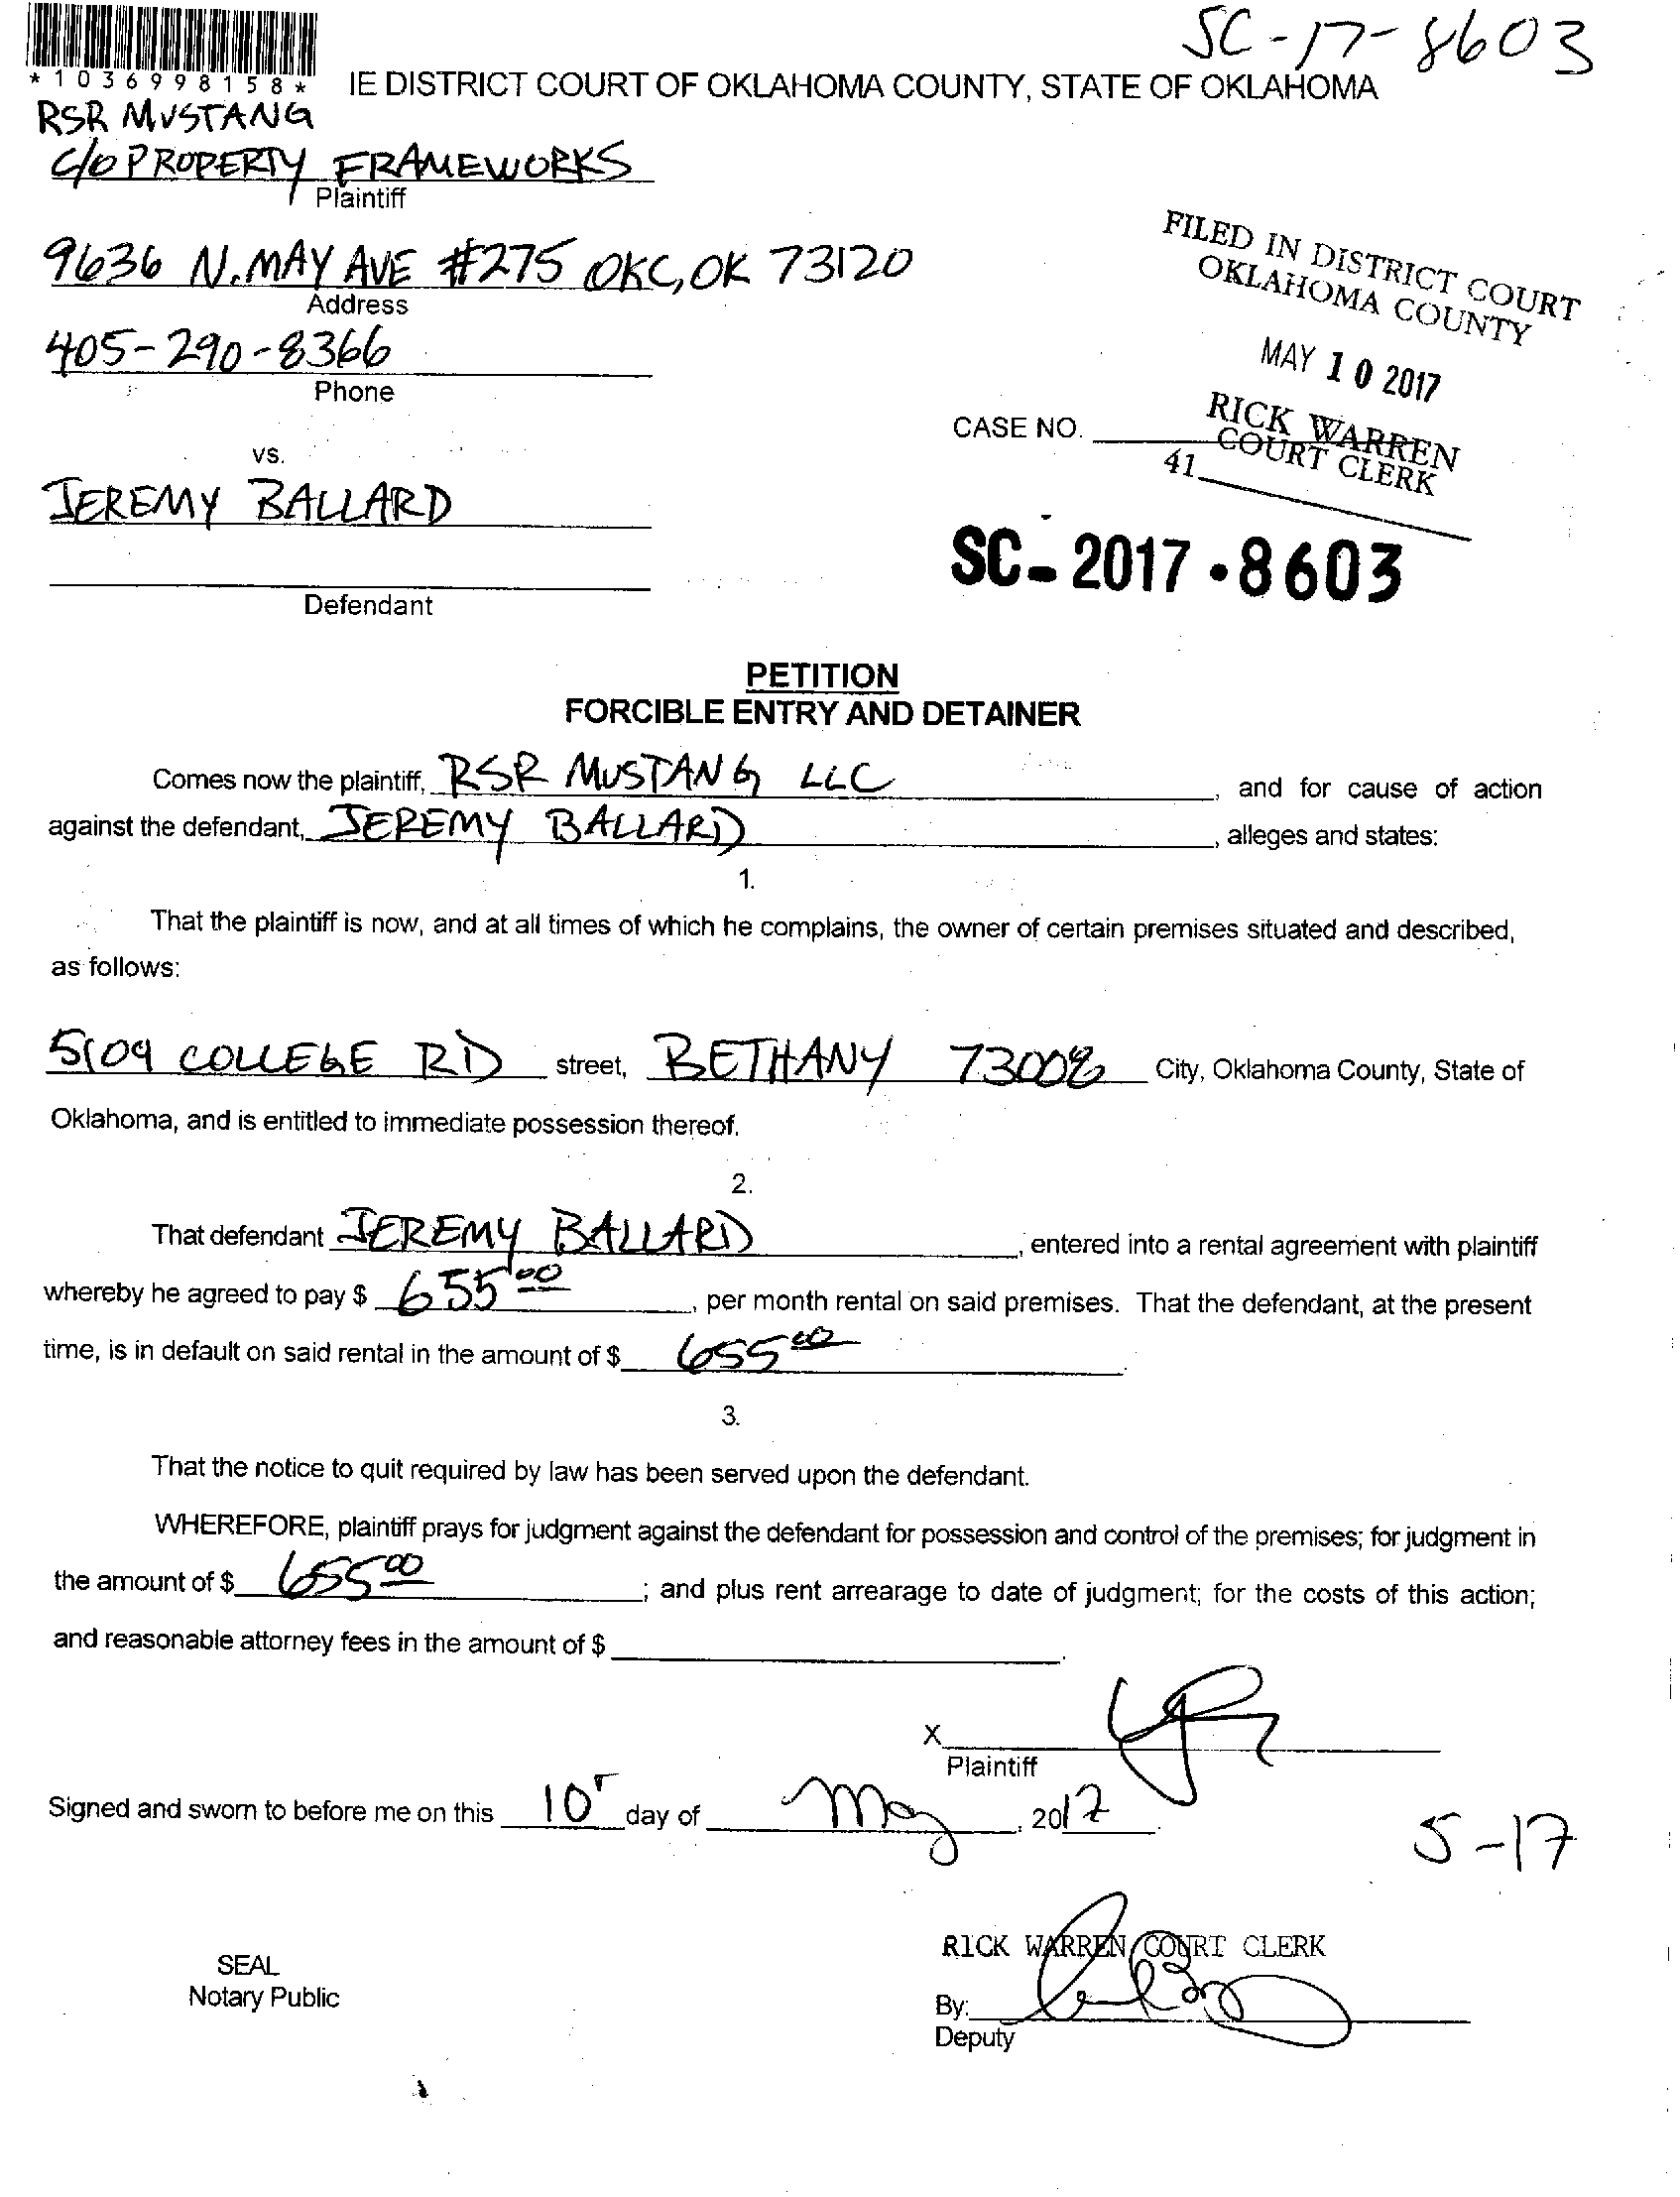 SC-17-8603
*1036998158* IE DISTRICT COURT OF OKLAHOMA COUNTY, STATE OF OKLAHOMA
RSR MUSTANG
C/O PROPERTY FRAMEWORKS
Plaintiff
9636 N. MAY AVE #275 OKC, OK 73120
Address
405-290-8366
Phone
FILED IN DISTRICT COURT
OKLAHOMA COUNTY
MAY 10 2017
RICK WARREN
COURT CLERK
41
CASE NO.
vs.
JEREMY BALLARD
Defendant
SC-2017-8603
PETITION
FORCIBLE ENTRY AND DETAINER
Comes now the plaintiff, RSR MUSTANG LLC, and for cause of action
against the defendant, JEREMY BALLARD, alleges and states:
1.
That the plaintiff is now, and at all times of which he complains, the owner of certain premises situated and described,
as follows:
5109 COLLEGE RD street, BETHANY 73008 City, Oklahoma County, State of
Oklahoma, and is entitled to immediate possession thereof.
2.
That defendant JEREMY BALLARD, entered into a rental agreement with plaintiff
whereby he agreed to pay $ 655 00, per month rental on said premises. That the defendant, at the present
time, is in default on said rental in the amount of $ 655 00.
3.
That the notice to quit required by law has been served upon the defendant.
WHEREFORE, plaintiff prays for judgment against the defendant for possession and control of the premises; for judgment in
the amount of $ 655 00; and plus rent arrearage to date of judgment; for the costs of this action;
and reasonable attorney fees in the amount of $ .
X
Plaintiff
Signed and sworn to before me on this 10 day of May, 2017.
5-17
RICK WARREN COURT CLERK
SEAL
Notary Public
By:
Deputy